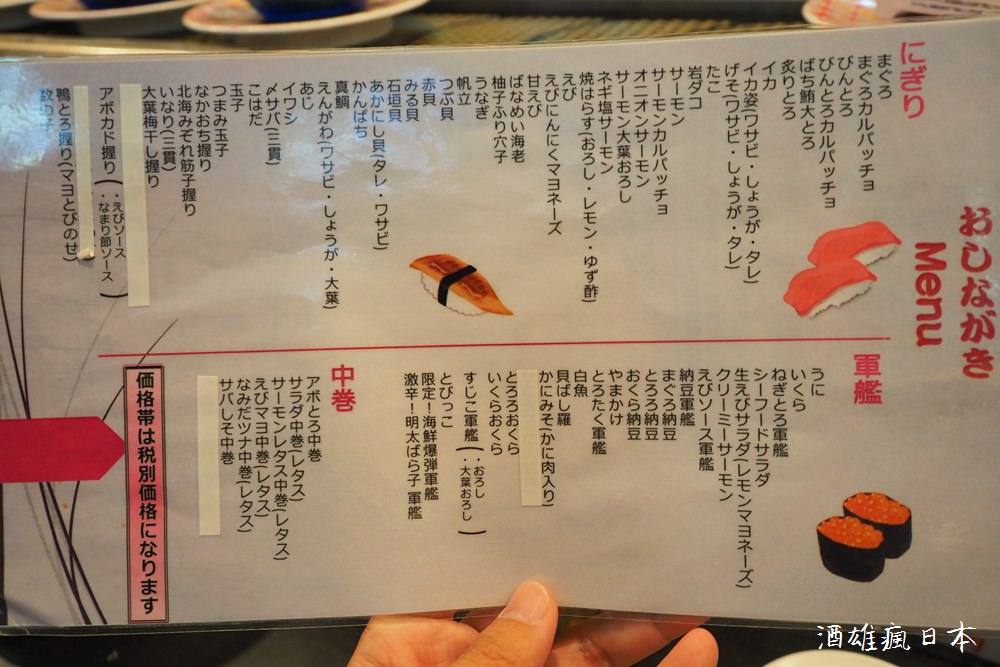 おしながき
Menu
にぎり
まぐろ
まぐろカルパッチョ
びんとろ
びんとろカルパッチョ
ばち鮪大とろ
炙りとろ
イカ
イカ姿(ワサビ・しょうが・タレ)
げそ(ワサビ・しょうが・タレ)
たこ
岩ダコ
サーモン
サーモンカルパッチョ
オニオンサーモン
サーモン大葉おろし
ネギ塩サーモン
焼はらす(おろし・レモン・ゆず酢)
えび
えびにんにくマヨネーズ
甘えび
ばなめい海老
柚子ふり穴子
うなぎ
帆立
つぶ貝
赤貝
みる貝
石垣貝
あかにし貝(タレ・ワサビ)
かんぱち
真鯛
えんがわ(ワサビ・しょうが・大葉)
あじ
イワシ
〆サバ(三貫)
こはだ
玉子
つまみ玉子
なかおち握り
北海みぞれ筋子握り
いなり(三貫)
大葉梅干し握り
アボカド握り(・えびソース
・なまり節ソース)
鴨とろ握り(マヨとびのせ)
数の子
軍艦
うに
いくら
ねぎとろ軍艦
シーフードサラダ
生えびサラダ(レモンマヨネーズ)
クリーミーサーモン
えびソース軍艦
納豆軍艦
まぐろ納豆
とろろ納豆
おくら納豆
やまかけ
とろたく軍艦
白魚
貝ばし羅
かにみそ(かに肉入り)
とろろおくら
いくらおくら
すじこ軍艦(・おろし
・大葉おろし)
とびっこ
限定!海鮮爆弾軍艦
激辛!明太ばら子 軍艦
中巻
アボとろ中巻
サラダ中巻(レタス)
サーモンレタス中巻(レタス)
えびマヨ中巻(レタス)
なみだツナ中巻(レタス)
サバしそ中巻
価格帯は税別価格になります
酒雄瘋日本